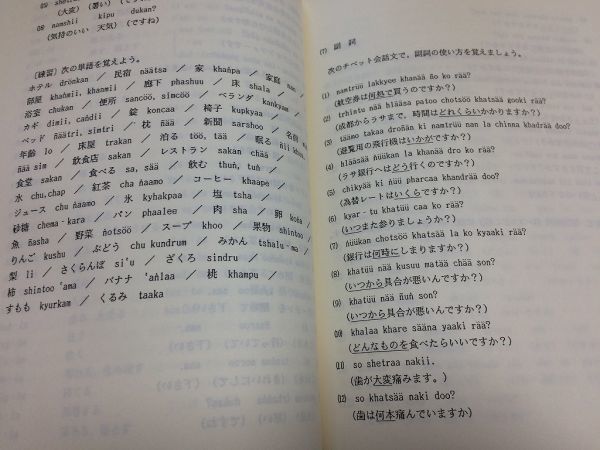 (大変) (暑い)
09 namshii kipu dukan?
(気持のいい 天気) (ですね)
〔練習〕次の単語を覚えよう。
ホテル drönkan ／ 民宿 näätsa ／ 家 khañpa ／ 家庭
部屋 khañmii, khanmii ／ 廊下 phashuu ／ 床 shala ／
浴室 chukan ／ 便所 sancöö, simcöö ／ ベランダ kankyam
カギ dimii, çandii ／ 錠 koncaa ／ 椅子 kupkyaa ／
ベッド ñäätri, simtri ／ 枕 ñää ／ 新聞 sarshoo ／ 名前
年齢 lo ／ 床屋 trakan ／ 泊る töö, tää ／ 眠る ñii
ñää sim ／ 飲食店 sakan ／ レストラン sakan chää ／
食堂 sakan ／ 食べる sa, sää ／ 飲む thuñ, tuñ ／
水 chu, chap ／ 紅茶 cha ñaamo ／ コーヒー khaape ／
ジュース chu ñaamo ／ 氷 kyhakpaa ／ 塩 tsha ／
砂糖 chema-kara ／ パン phaalee ／ 肉 sha ／ 卵
魚 ñasha ／ 野菜 ñotsöö ／ スープ khoo ／ 果物 shintoo
りんご kushu ／ ぶどう chu kundrum ／ みかん tshalu-ma ／
梨 li ／ さくらんぼ si'u ／ ざくろ sindru ／
柿 shintoo 'ama ／ バナナ 'añlaa ／ 桃 khampu ／
すもも kyurkam ／ くるみ taaka
(7) 副 詞
次のチベット会話文で、副詞の使い方を覚えましょう。
(1) namtruü lakkyee khanää ño ko rää?
(航空券は何処で買うのですか？)
(2) trhintu nää hlääsa patoo chotsöö khatsää gooki rää?
(成都からラサまで、時間はどれくらいかかりますか？)
(3) täämo takaa droñan ki namtruü nan la chinna khadrää doo?
(遊覧用の飛行機はいかがですか？)
(4) hlääsää ñüükan la khanää dro ko rää?
(ラサ銀行へはどう行くのですか？)
(5) chikyää ki ñüü pharcaa khandrää doo?
(為替レートはいくらですか？)
(6) kyar-tu khatüü caa ko rää?
(いつまた参りましょうか？)
(7) ñüükan chotsöö khatsää la ko kyaaki rää?
(銀行は何時にしまりますか？)
(8) khatüü nää kusuu matää chää son?
(いつから具合が悪いんですか？)
(9) khatüü nää ñuñ son?
(いつから具合が悪いんですか？)
(10) khalaa khare sääna yaaki rää?
(どんなものを食べたらいいですか？)
(11) so shetraa nakii.
(歯が大変痛みます。)
(12) so khatsää naki doo?
(歯は何本痛んでいますか)